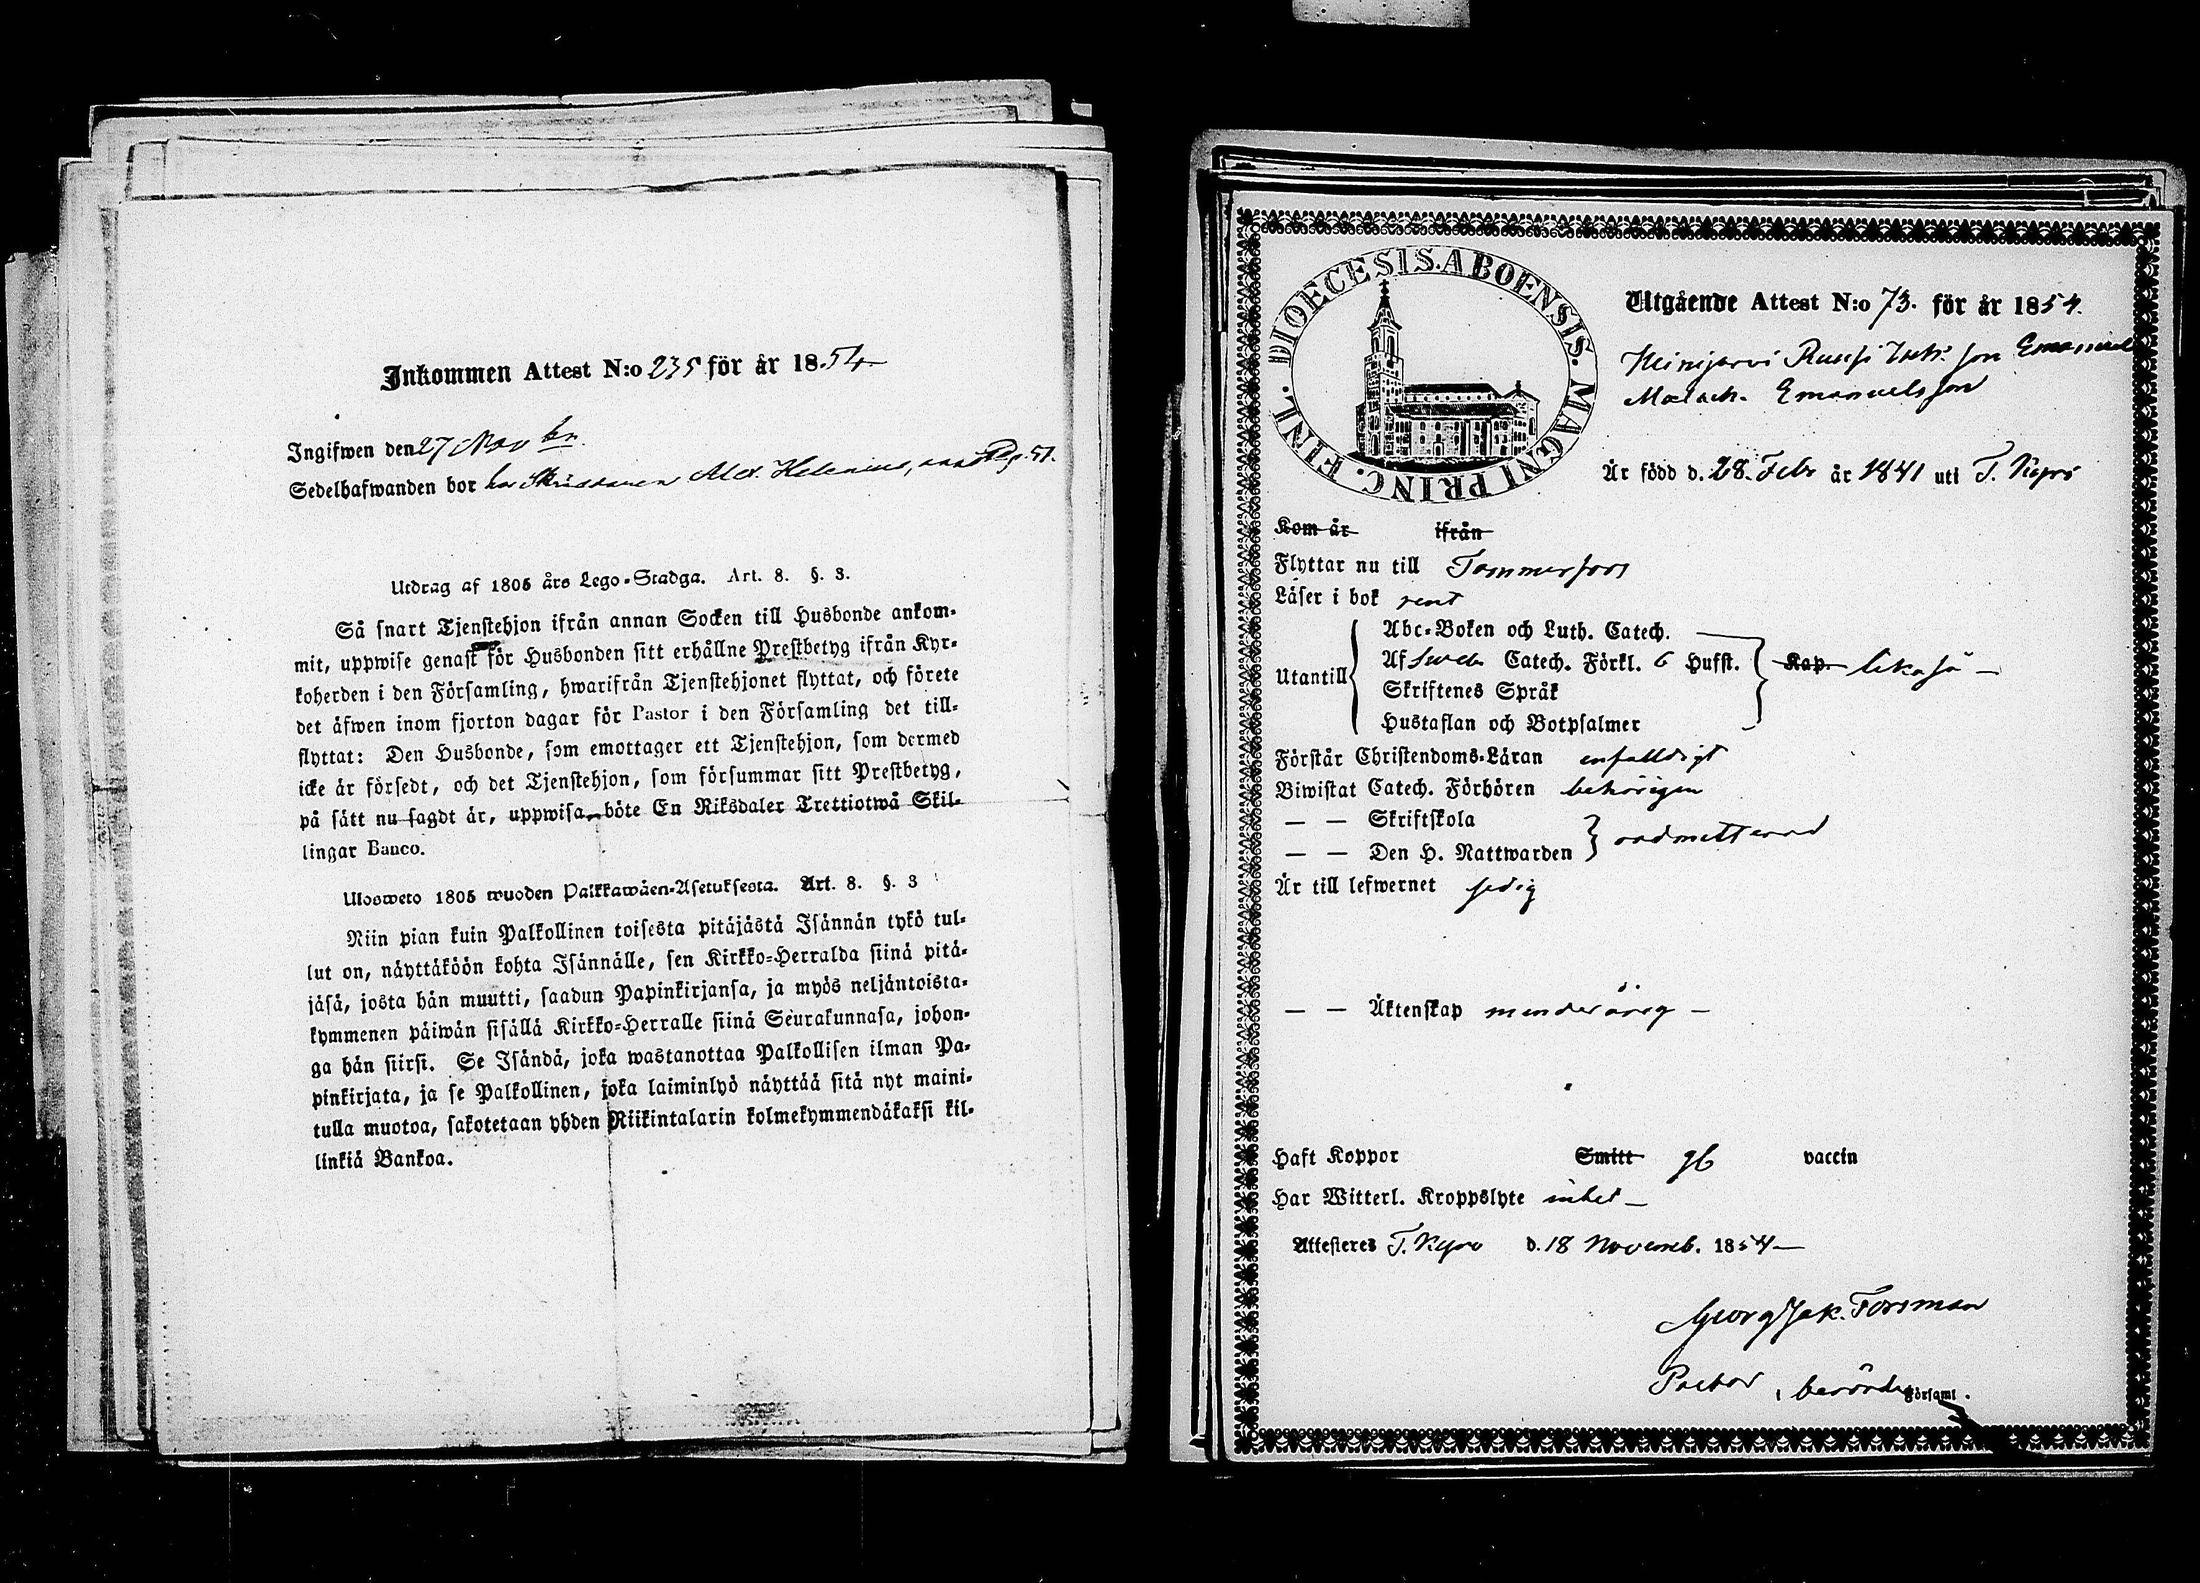 Inkommen Attest N:o 235 för år 1854
Ingifwen den 27 Novbr.
Sedelhafwanden bor hos Skräddaren Ald. Helenius, Pag. 51.
Utdrag af 1805 års Lego-Stadga. Art. 8. §. 3.
Så snart Tjenstehjon ifrån annan Socken till Husbonde ankom-
mit, uppwise genast för Husbonden sitt erhållne Prestbetyg ifrån Kyr-
koherden i den Församling, hwarifrån Tjenstehjonet flyttat, och förete
det äfwen inom fjorton dagar för Pastor i den Församling det till-
flyttat: Den Husbonde, som emottager ett Tjenstehjon, som dermed
icke är försedt, och det Tjenstehjon, som försummar sitt Prestbetyg,
på sätt nu sagdt är, uppwisa, böte En Riksdaler Trettiotwå Skil-
lingar Banco.
Ulosweto 1805 wuoden Palkkawäen-Asetuksesta. Art. 8. §. 3
Niin pian kuin Palkollinen toisesta pitäjästä Isännän tykö tul-
lut on, näyttäköön kohta Isännälle, sen Kirkko-Herralda siinä pitä-
jäsä, josta hän muutti, saadun Papinkirjansa, ja myös neljäntoista-
kymmenen päiwän sisällä Kirkko-Herralle siinä Seurakunnasa, johon-
ga hän siirsi. Se Isändä, joka wastanottaa Palkollisen ilman Pa-
pinkirjata, ja se Palkollinen, joka laiminlyö näyttää sitä nyt maini-
tulla muotoa, sakotetaan yhden Riikintalarin kolmekymmendäkaksi kil-
linkiä Bankoa.
DIOECESIS. ABOENSIS. MAGNI PRINC. FINL.
Utgående Attest N:o 73. för år 1854.
Heinijärvi Ruusi son Emanuel
Malach. Emanuelsson
Är född d. 28. Febr år 1841 uti T. Kyro
Kom år ifrån
Flyttar nu till Tammerfors
Läser i bok rent
Utantill
Abc-Boken och Luth. Catech.
Af Sveb. Catech. Förkl. 6 Hufst. Kap. likaså —
Skriftenes Språk
Hustaflan och Botpsalmer
Förstår Christendoms-Läran enfalldigt
Biwistat Catech. Förhören behörigen
— — Skriftskola
— — Den H. Nattwarden oadmitterad
Är till lefwernet sedig
— — Äktenskap minderårig —
Haft Koppor Smitt gb vaccin
Har Witterl. Kroppslyte intet —
Attesteres T. Kyro d. 18 Novemb. 1854 —
Georg Jak. Forsman
Pastor i berörde Församl.